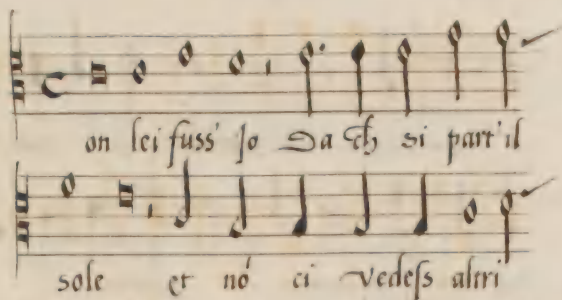 on lei fuss' Jo Da ch si part' il
sole et nó ci vedess altri